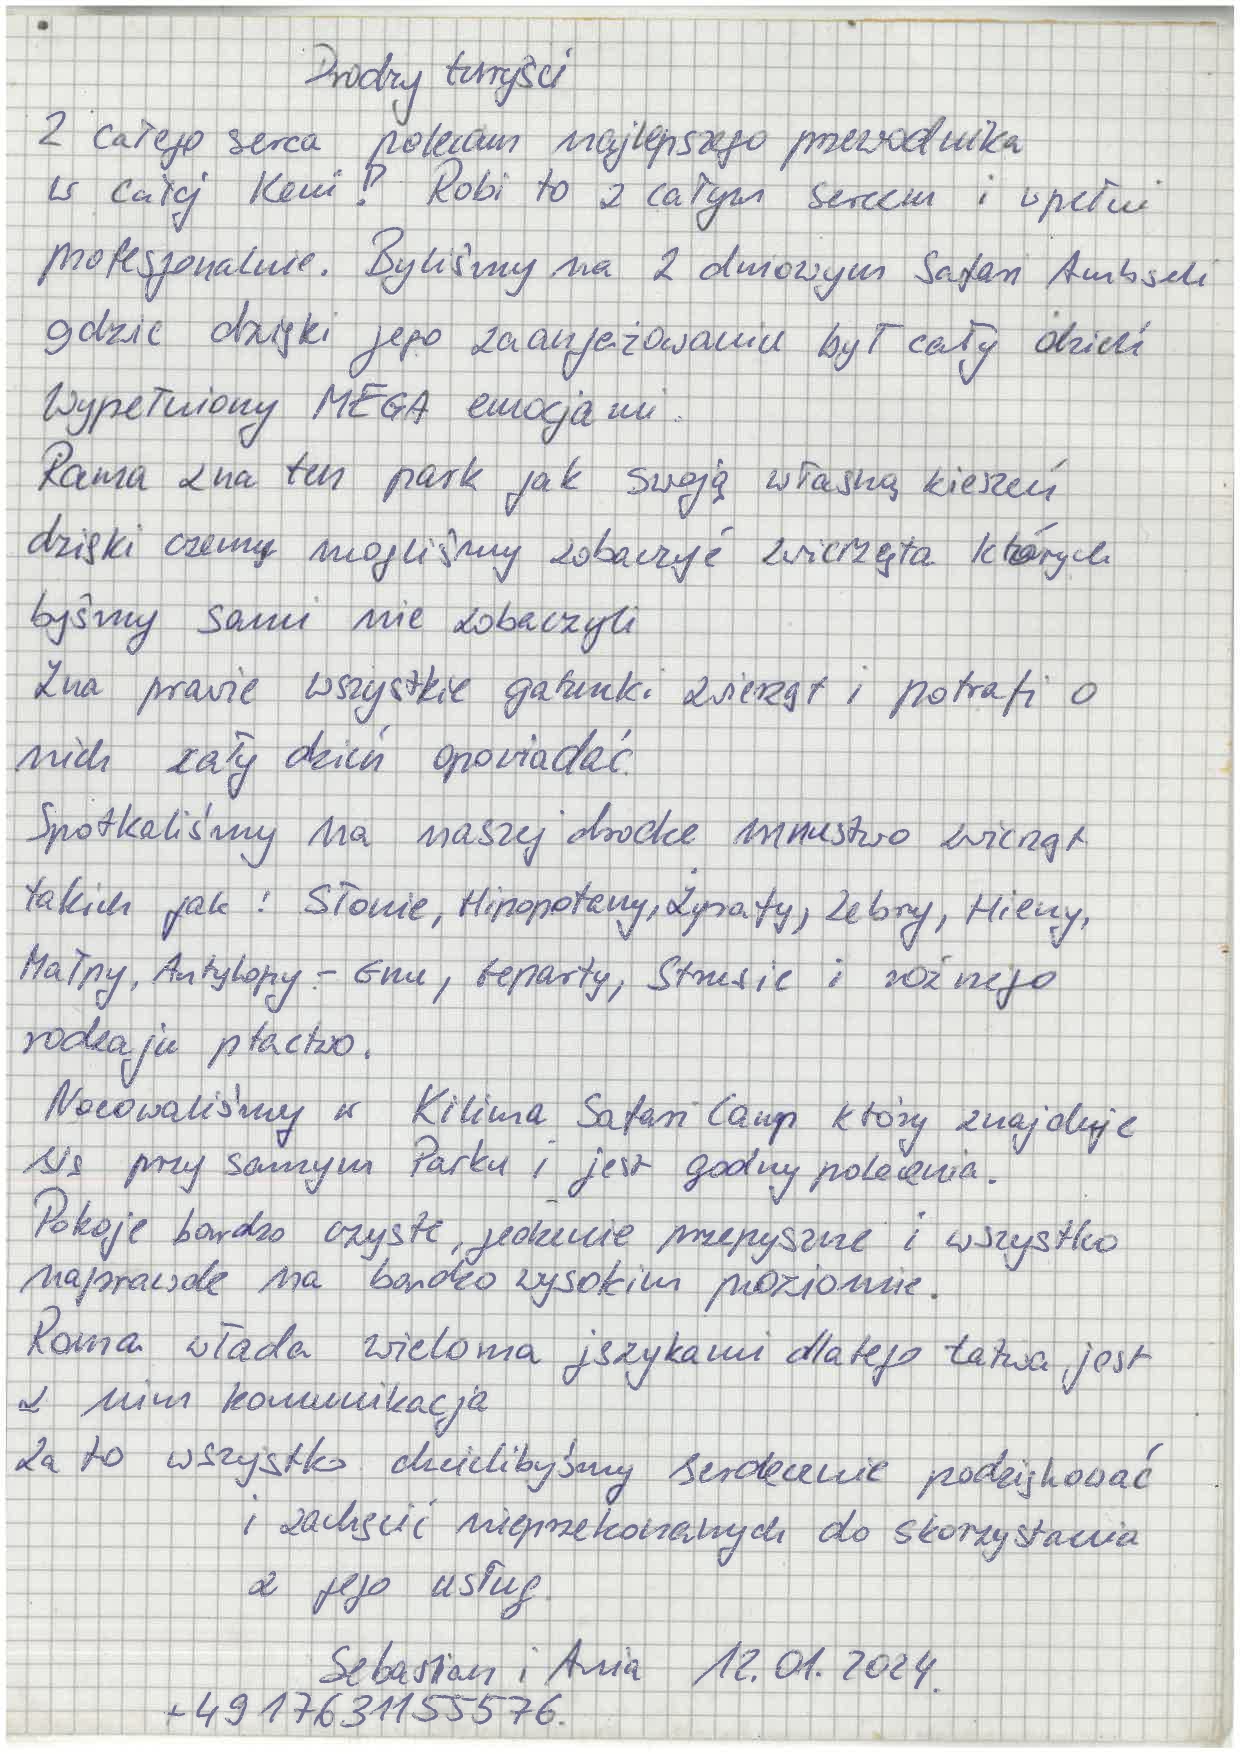 Drodzy turyści
Z całego serca polecam najlepszego przewodnika
w całej Keni! Robi to z całym sercem i wpełni
profesjonalnie. Byliśmy na 2 dniowym Safari Ambseli
gdzie dzięki jego zaangeżowaniu był cały dzień
Wypełniony MEGA emocjami.
Rama zna ten park jak swoją własną kieszeń
dzięki czemu mogliśmy zobaczyć zwierzęta których
byśmy sami nie zobaczyli
Zna prawie wszystkie gatunki zwierząt i potrafi o
nich cały dzień opowiadać.
Spotkaliśmy na naszej drodze mnustwo zwierząt
takich jak: Słonie, Hipopotamy, Żyrafy, Zebry, Hieny,
Małpy, Antylopy - Gnu, Geparty, Strusie i rożnego
rodzaju ptactwo.
Nocowaliśmy w Kilima Safari Camp który znajduje
się przy samym Parku i jest godny polecenia.
Pokoje bardzo czyste, jedzenie przepyszne i wszystko
naprawde na bardzo wysokim poziomie.
Rama włada wieloma językami dlatego łatwa jest
z nim komunikacja
Za to wszystko chcielibyśmy serdecznie podziękować
i zachęcić nieprzekonanych do skorzystania
z jego usług.
Sebastian i Ania 12.01.2024.
+4917631155576.